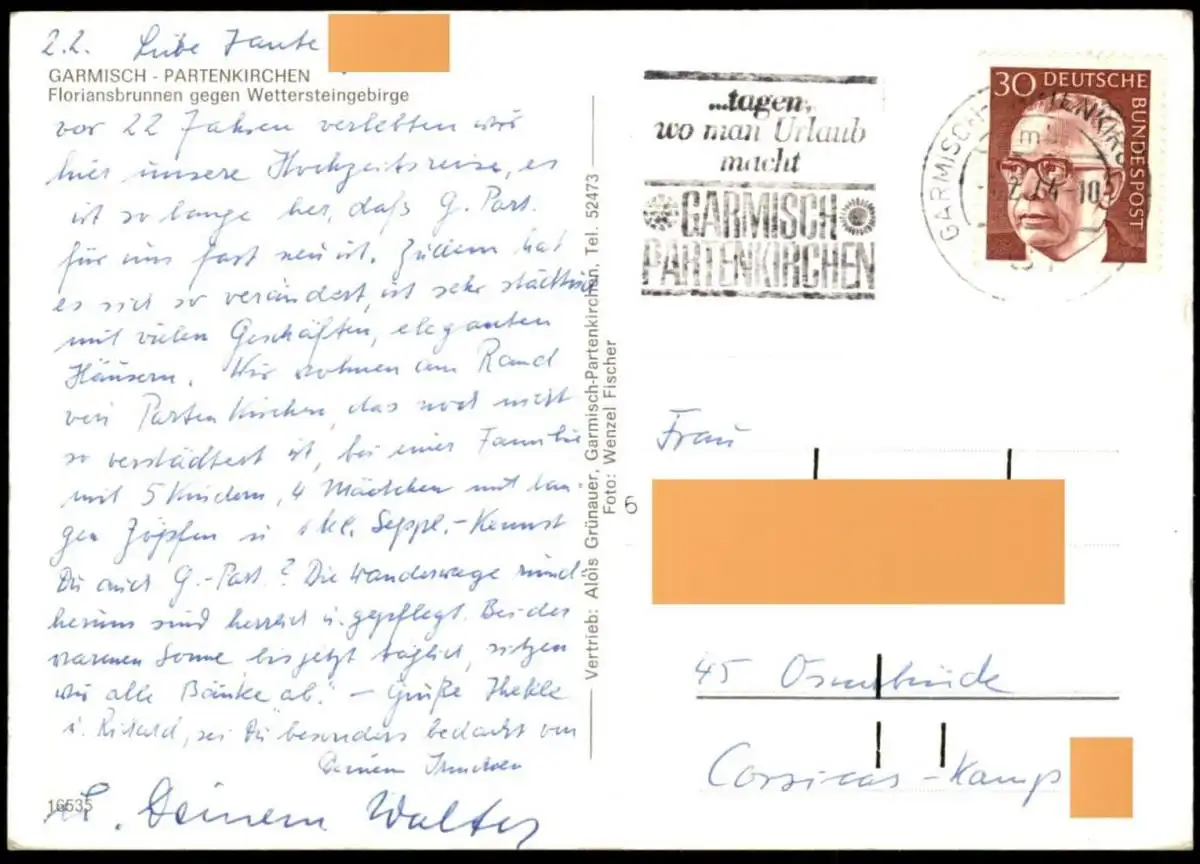 2.2. Liebe Tante
GARMISCH - PARTENKIRCHEN
Floriansbrunnen gegen Wettersteingebirge
vor 22 Jahren verlebten wir
hier unsere Hochzeitsreise, es
ist so lange her, daß G. Part.
für uns fast neu ist. Zudem hat
es sich so verändert, ist sehr städtisch
mit vielen Geschäften, eleganten
Häusern. Wir wohnen am Rand
von Partenkirchen, das noch nicht
so verstädtert ist, bei einer Familie
mit 5 Kindern, 4 Mädchen mit lan-
gen Zöpfen u. 1 kl. Seppl. - Kennst
Du auch G.-Part.? Die Wanderwege rund-
herum sind herrlich u. gepflegt. Bei der
warmen Sonne bis jetzt täglich, sitzen
wir alle Bänke "ab". - Grüße Thekla
u. Richard, sei Du besonders bedacht von
Deinem
Deinem Walter
16535
Vertrieb: Alois Grünauer, Garmisch-Partenkirchen, Tel. 52473
Foto: Wenzel Fischer
...tagen,
wo man Urlaub
macht
GARMISCH
PARTENKIRCHEN
30 DEUTSCHE
BUNDESPOST
GARMISCH-PARTENKIRCHEN
Frau
6
45 Osnabrück
Corsicas-Kamp